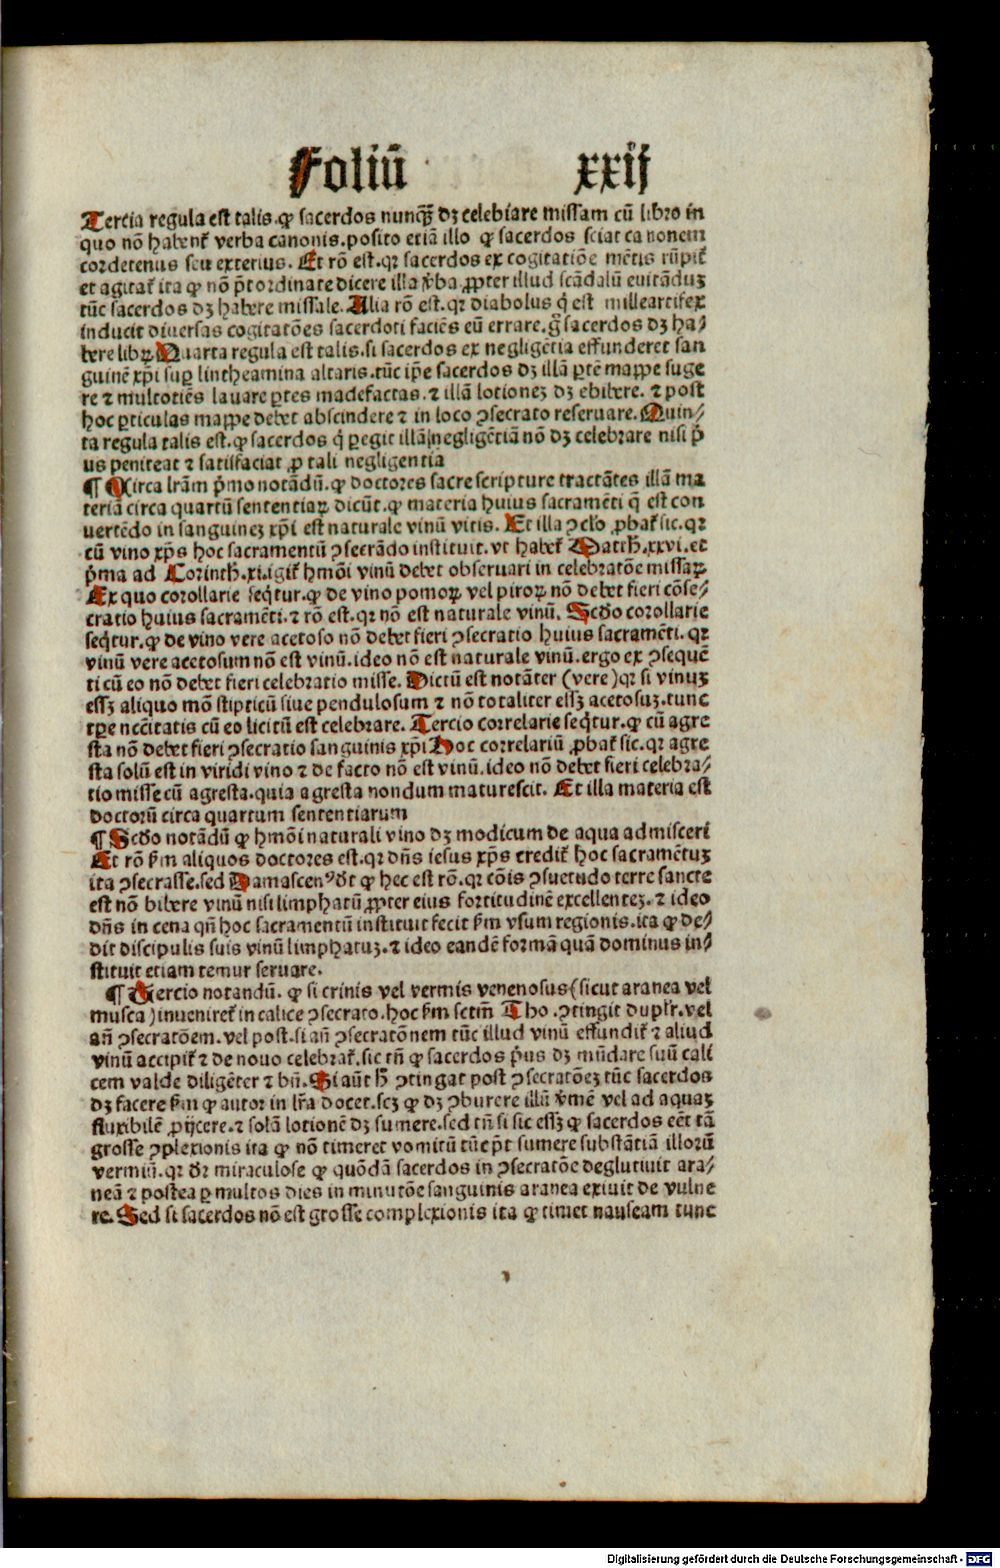 Foliū xxij
Tercia regula est talis. ꝙ sacerdos nunqꝫ dꝫ celebrare missam cū libro in
quo nō habent᷑ verba canonis. posito etiā illo ꝙ sacerdos sciat canonem
cordetenus seu exterius. Et rō est. qꝛ sacerdos ex cogitatiōe mētis rūpit᷑
et agitat᷑ ita ꝙ nō p̄t ordinate dicere illa v̄ba ꝓpter illud scādalū euitāduꝫ
tūc sacerdos dꝫ habere missale. Alia rō est. qꝛ diabolus q̇ est milleartifex
inducit diuersas cogitatōes sacerdoti faciēs eū errare. g̊ sacerdos dꝫ ha⸗
bere libꝝ Quarta regula est talis. si sacerdos ex negligētia effunderet san
guinē xp̄i suꝑ lintheamina altaris. tūc ip̄e sacerdos dꝫ illā ꝑtē mappe suge
re ⁊ multotiēs lauare ꝑtes madefactas. ⁊ illā lotioneꝫ dꝫ ebibere. ⁊ post
hoc ꝑticulas mappe debet abscindere ⁊ in loco ꝯsecrato reseruare. Quin⸗
ta regula talis est. ꝙ sacerdos q̇ ꝑegit illā negligētiā nō dꝫ celebrare nisi p̄
us peniteat ⁊ satisfaciat ꝓ tali negligentia
¶ Circa lr̄am p̄mo notādū. ꝙ doctores sacre scripture tractātes illā ma
teriā circa quartū sententiaꝝ dicūt. ꝙ materia huius sacramēti q̄ est con
uertēdo in sanguineꝫ xp̄i est naturale vinū vitis. Et illa ꝯclo̊ ꝓbat᷑ sic. qꝛ
cū vino xp̄s hoc sacramentū ꝯsecrādo instituit. vt habet᷑ Matth. xxvi. et
p̄ma ad Corinth. xi. igit᷑ hmōi vinū debet obseruari in celebratōe missaꝝ
Ex quo corollarie seq̇tur. ꝙ de vino pomoꝝ vel piroꝝ nō debet fieri cōse⸗
cratio huius sacramēti. ⁊ rō est. qꝛ nō est naturale vinū. Scd̊o corollarie
seq̇tur. ꝙ de vino vere acetoso nō debet fieri ꝯsecratio huius sacramēti. qꝛ
vinū vere acetosum nō est vinū. ideo nō est naturale vinū. ergo ex ꝯsequē
ti cū eo nō debet fieri celebratio misse. Dictū est notāter (vere) qꝛ si vinuꝫ
essꝫ aliquo mō stipticū siue pendulosum ⁊ nō totaliter essꝫ acetosuꝫ. tunc
tꝑe nccītatis cū eo licitū est celebrare. Tercio correlarie seq̇tur. ꝙ cū agre
sta nō debet fieri ꝯsecratio sanguinis xp̄i Hoc correlariū ꝓbat᷑ sic. qꝛ agre
sta solū est in viridi vino ⁊ de facto nō est vinū. ideo nō debet fieri celebra⸗
tio misse cū agresta. quia agresta nondum maturescit. Et illa materia est
doctorū circa quartum sententiarum
¶ Scd̊o notādū ꝙ hmōi naturali vino dꝫ modicum de aqua admisceri
Et rō ẜm aliquos doctores est. qꝛ dn̄s iesus xp̄s credit᷑ hoc sacramētuꝫ
ita ꝯsecrasse. sed Damascenꝰ dt̄ ꝙ hec est rō. qꝛ cōis ꝯsuetudo terre sancte
est nō bibere vinū nisi limphatū ꝓpter eius fortitudinē excellenteꝫ. ⁊ ideo
dn̄s in cena qn̄ hoc sacramentū instituit fecit ẜm vsum regionis. ita ꝙ de⸗
dit discipulis suis vinū limphatuꝫ. ⁊ ideo eandē formā quā dominus in⸗
stituit etiam temur seruare.
¶ Tercio notandū. ꝙ si crinis vel vermis venenosus (sicut aranea vel
musca) inueniret᷑ in calice ꝯsecrato. hoc ẜm sctm̄ Tho. ꝯtingit duplr̄. vel
an̄ ꝯsecratōem. vel post. si an̄ ꝯsecratōnem tūc illud vinū effundit᷑ ⁊ aliud
vinū accipit᷑ ⁊ de nouo celebrat᷑. sic tn̄ ꝙ sacerdos p̄us dꝫ mūdare suū cali
cem valde diligēter ⁊ bn̄. Si aūt h̄ ꝯtingat post ꝯsecratōeꝫ tūc sacerdos
dꝫ facere ẜm ꝙ autor in lr̄a docet. scꝫ ꝙ dꝫ ꝯburere illū v̄mē vel ad aquaꝫ
fluxibilē ꝓijcere. ⁊ solā lotionē dꝫ sumere. sed tn̄ si sic essꝫ ꝙ sacerdos eēt tā
grosse ꝯplexionis ita ꝙ nō timeret vomitū tūc p̄t sumere substātiā illorū
vermiū. qꝛ dr̄ miraculose ꝙ quōdā sacerdos in ꝯsecratōe deglutiuit ara⸗
neā ⁊ postea ꝑ multos dies in minutōe sanguinis aranea exiuit de vulne
re. Sed si sacerdos nō est grosse complexionis ita ꝙ timet nauseam tunc
Digitalisierung gefördert durch die Deutsche Forschungsgemeinschaft - DFG